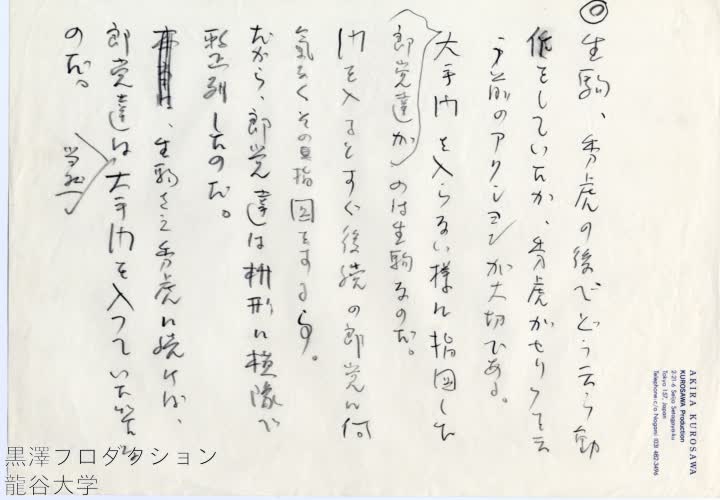 ◎生駒、秀虎の後でどう云う動
作をしていたか、秀虎がセリフを云
う前のアクションが大切である。
大手門を入らない様に指図した
郎党達が
のは生駒なのだ。
門を入るとすぐ後続の郎党に何
気なくその指図をする事。
だから、郎党達は桝形に横隊で
整列したのだ。
、生駒さえ秀虎に続けば、
郎党達は大手門を入っていた筈な
のだ。
当然
AKIRA KUROSAWA
KUROSAWA Production
2-21-6 Seijo Setagayaku
Tokyo 157, Japan
Telephone c/o Nogami (03) 482-3496
黒澤プロダクション
龍谷大学